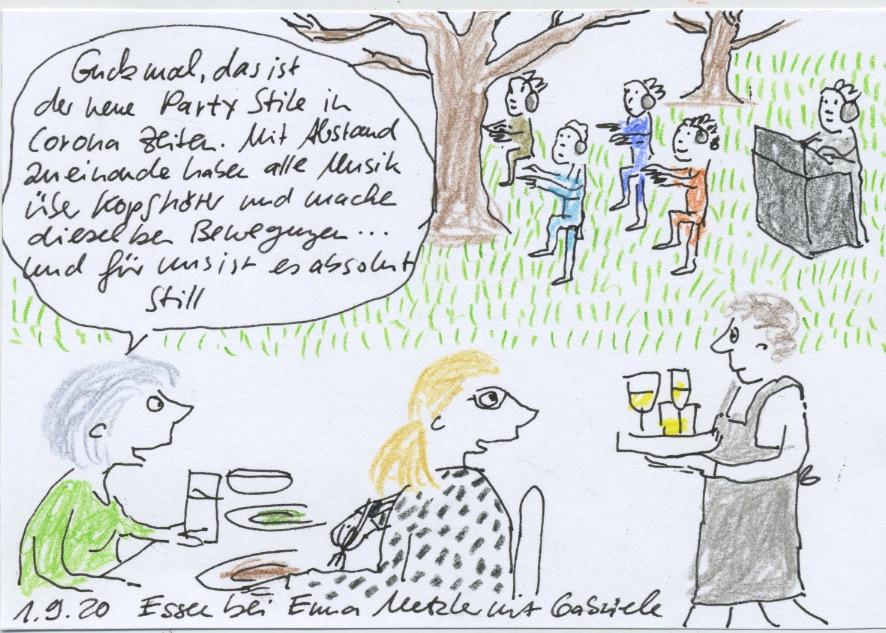 Guck mal, das ist
der neue Party Stile in
Corona Zeiten. Mit Abstand
zueinande haben alle Musik
über Kopfhörer und mache
dieselben Bewegungen...
und für uns ist es absolut
Still
1.9.20 Essen bei Emma Metzler mit Gabriele